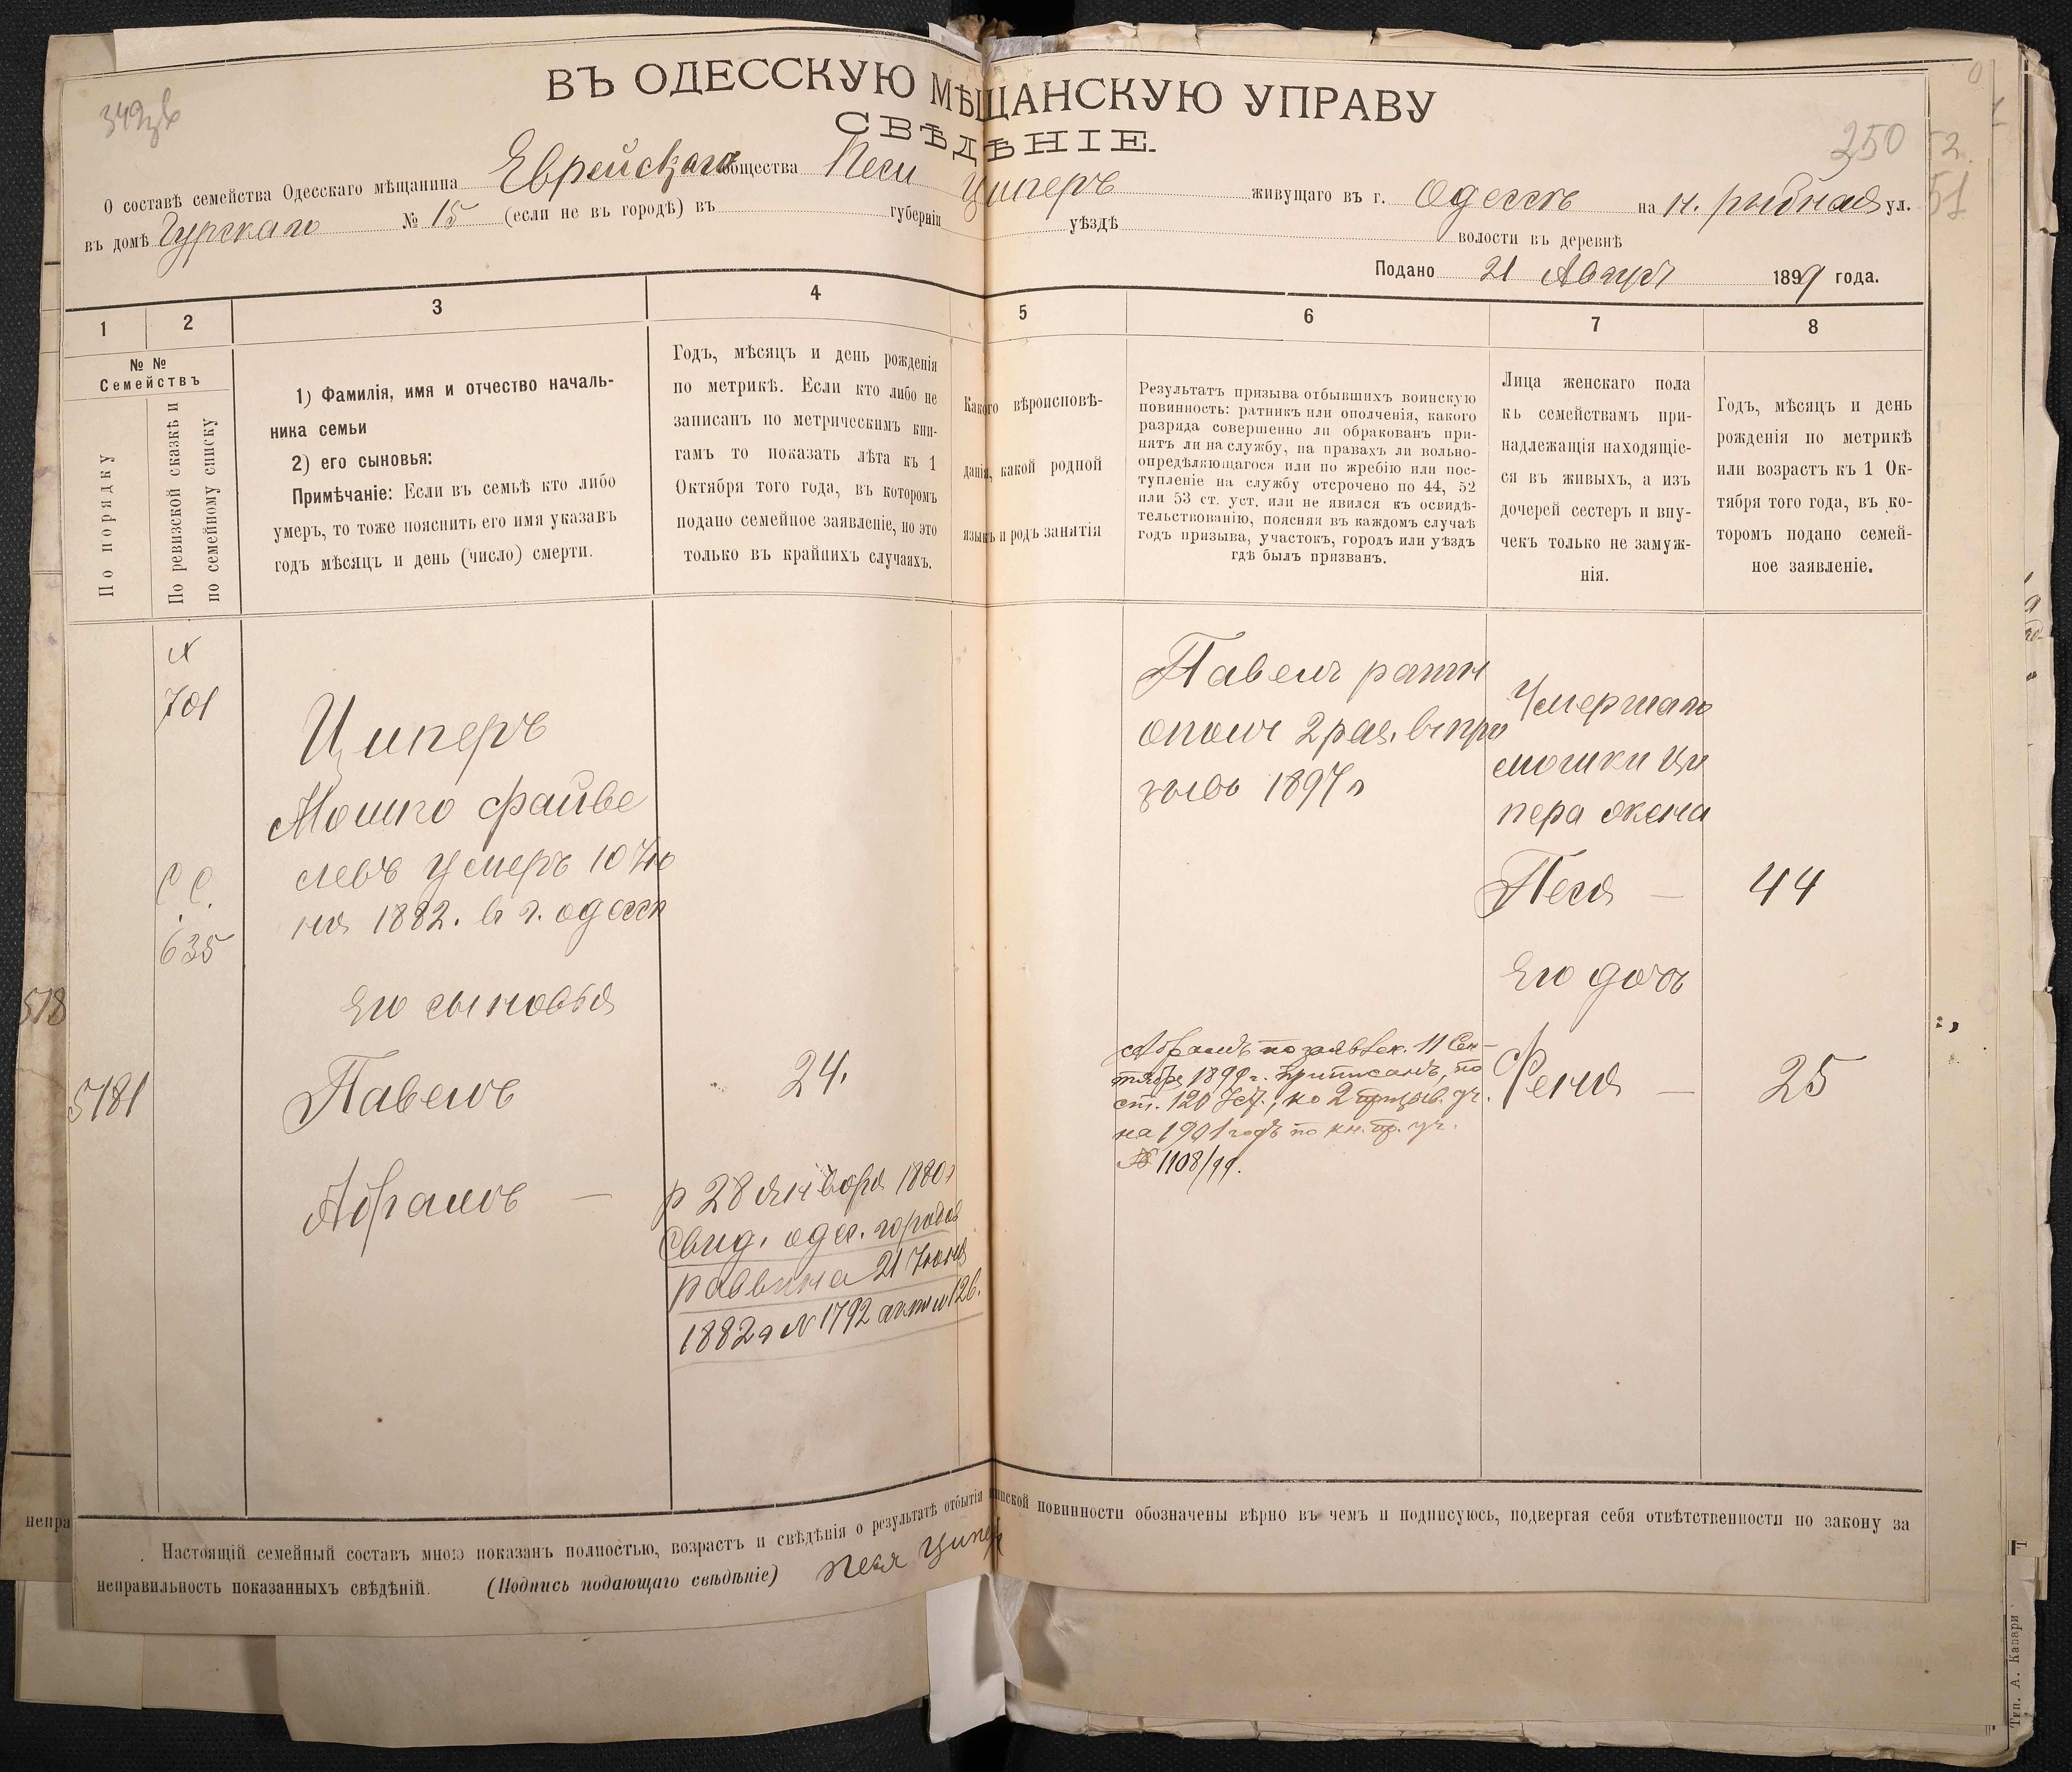 349
ВЪ ОДЕССКУЮ МѢЩАНСКУЮ УПРАВУ
СВѢДѢНІЕ.
250
52.
51
О составѣ семейства Одесскаго мѣщанина Еврейскаго общества Песи Циперъ живущаго въ г. Одессѣ на н. рыбная ул.
въ домѣ Гурскаго № 15 (если не въ городѣ) въ губерніи уѣздѣ волости въ деревнѣ
Подано 21 Август 1899 года.
1 2 3 4 5 6 7 8
№ №
Семействъ
По порядку
По ревизской сказкѣ и
по семейному списку
1) Фамилія, имя и отчество началь-
ника семьи
2) его сыновья:
Примѣчаніе: Если въ семьѣ кто либо
умеръ, то тоже пояснить его имя указавъ
годъ мѣсяцъ и день (число) смерти.
Годъ, мѣсяцъ и день рожденія
по метрикѣ. Если кто либо не
записанъ по метрическимъ кни-
гамъ то показать лѣта къ 1
Октября того года, въ которомъ
подано семейное заявленіе, но это
только въ крайнихъ случаяхъ.
Какого вѣроисповѣ-
данія, какой родной
языкъ и родъ занятія
Результатъ призыва отбывшихъ воинскую
повинность: ратникъ или ополченія, какого
разряда совершенно ли обракованъ при-
нятъ ли на службу, на правахъ ли вольно-
опредѣляющагося или по жребію или пос-
тупленіе на службу отсрочено по 44, 52
или 53 ст. уст. или не явился къ освидѣ-
тельствованію, поясняя въ каждомъ случаѣ
годъ призыва, участокъ, городъ или уѣздъ
гдѣ былъ призванъ.
Лица женскаго пола
къ семействамъ при-
надлежащія находящіе-
ся въ живыхъ, а изъ
дочерей сестеръ и вну-
чекъ только не замуж-
нія.
Годъ, мѣсяцъ и день
рожденія по метрикѣ
или возрастъ къ 1 Ок-
тября того года, въ ко-
торомъ подано семей-
ное заявленіе.
N
701
С С.
635
518
5181
Циперъ
Мошко Файве
левъ умеръ 10 Ию
ня 1882. в г. одессѣ
Его сыновья
Павелъ
24.
Абрамъ —
р 28 января 1880 г
Свид. одес. городов
раввина 21 Июня
1882 г N 1792 актом 126.
Павелъ ратн
ополч 2 раз. в при
зывъ 1897 г
Абрамъ по заявлен. 11 Сен-
тября 1899 г. приписанъ, по
ст. 120 Уст., ко 2 призыв. уч.
на 1901 годъ по кн. пр. уч.
№ 1108/99.
Умершаго
мошки Ци
пера жена
Песя — 44
Его дочь
Феня — 25
Настоящій семейный составъ мною показанъ полностью, возрастъ и свѣдѣнія о результатѣ отбытія воинской повинности обозначены вѣрно въ чемъ и подписуюсь, подвергая себя отвѣтственности по закону за
неправильность показанныхъ свѣдѣній. (Подпись подающаго свѣдѣніе) Песя Ципер
непра
Тип. А. Капари